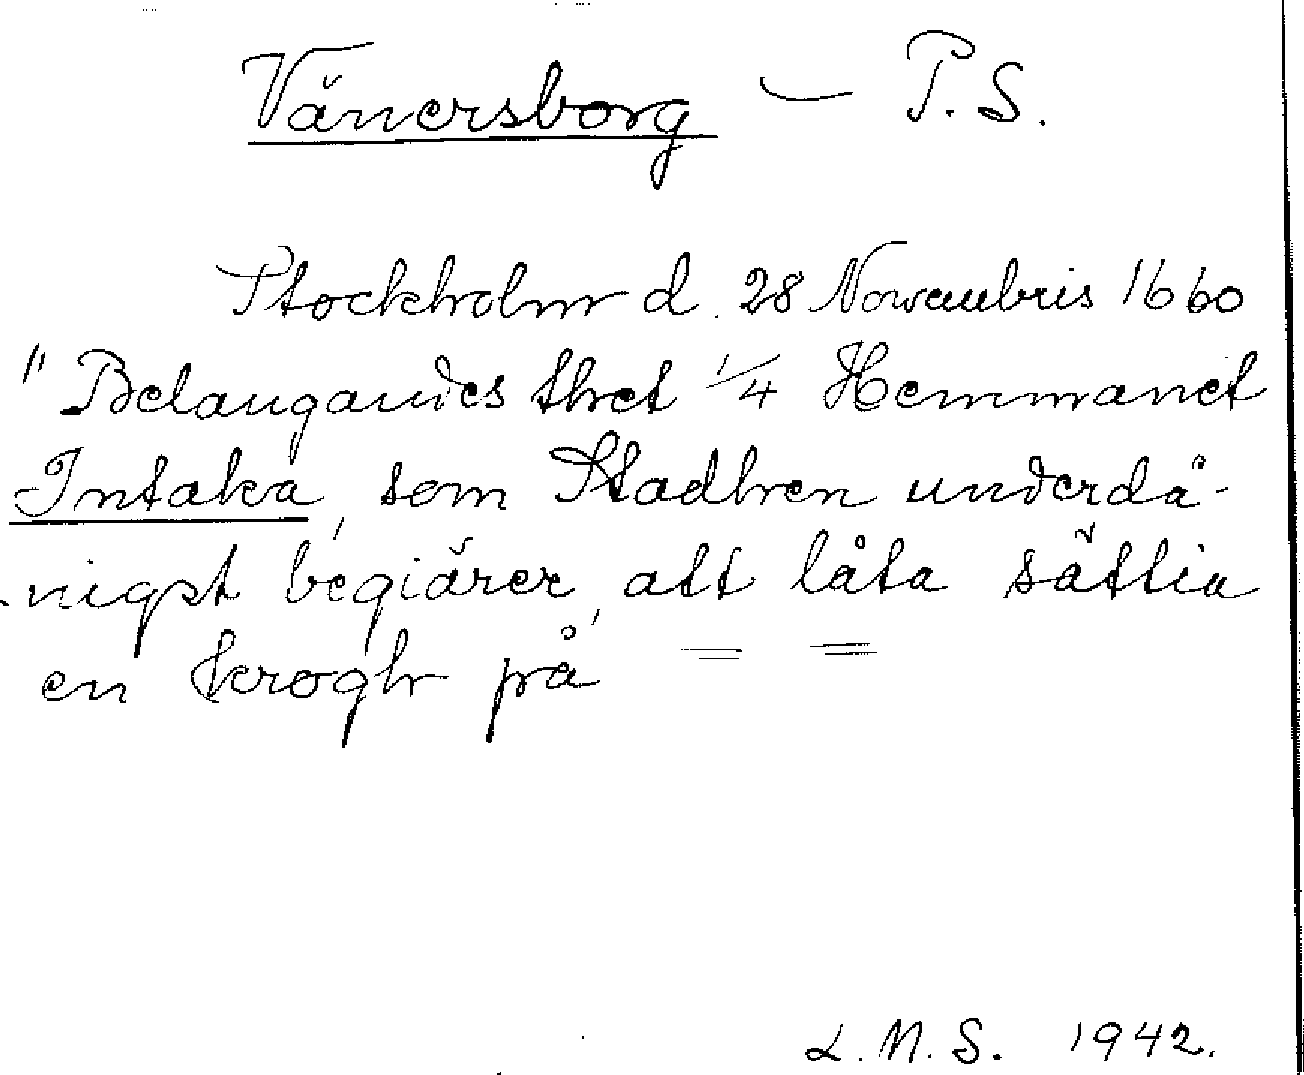 Vänersborg — P.S.
Stockholm d. 28 Novembris 1660
"Belangandes thet 1/4 Hemmanet
Intaka, som Stadhen underdå-
nigst begiärer, att låta sättia
en krogh på = =
L.M.S. 1942.